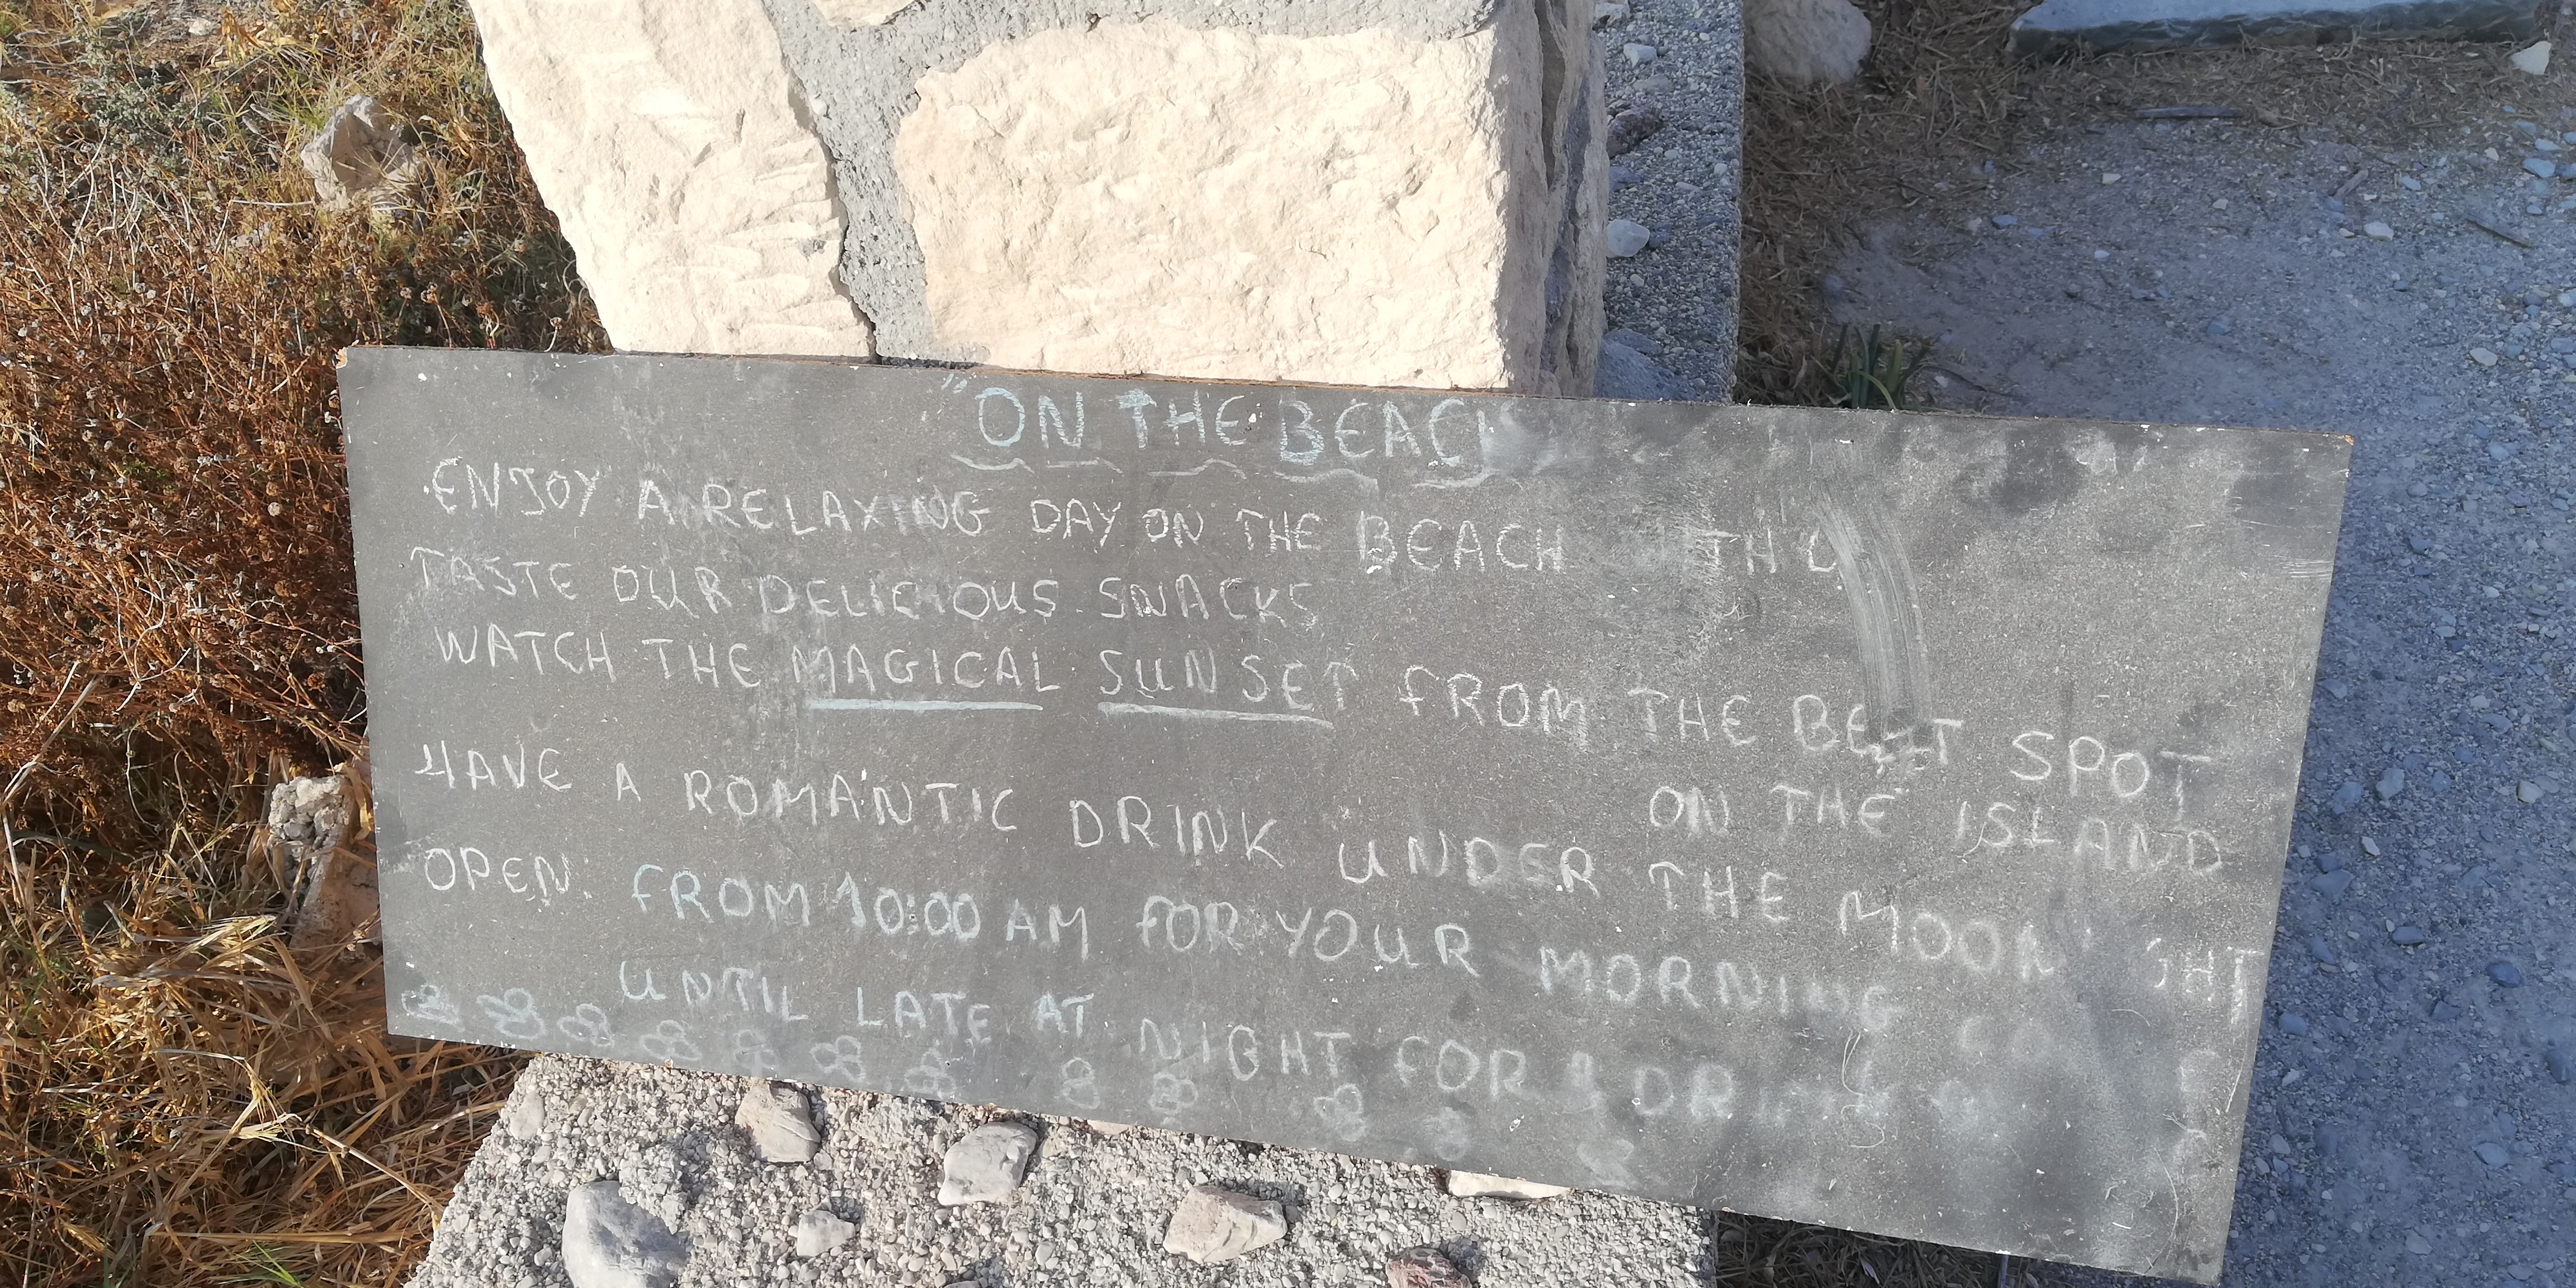 "ON THE BEACH
ENJOY A RELAXING DAY ON THE BEACH
TASTE OUR DELICIOUS SNACKS
WATCH THE MAGICAL SUNSET FROM THE BEST SPOT
ON THE ISLAND
HAVE A ROMANTIC DRINK UNDER THE
OPEN: FROM 10:00 AM FOR YOUR MORNING
UNTIL LATE AT NIGHT FOR